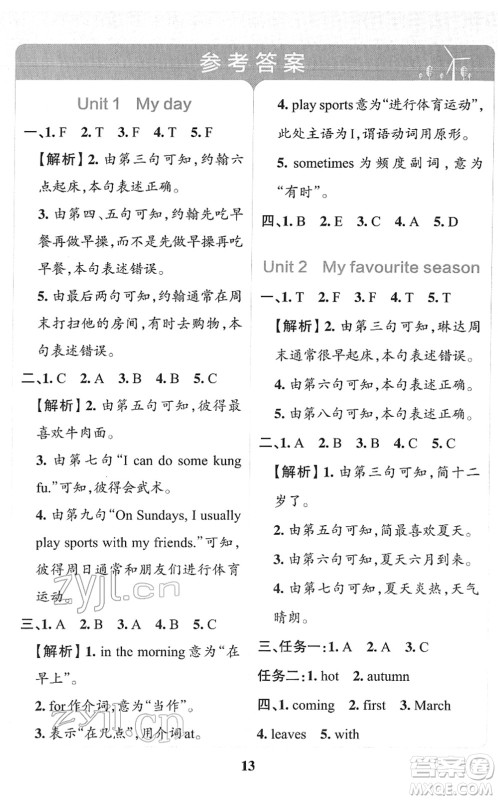 参考答案
Unit 1 My day
一、1. F 2. T 3. F 4. T 5. F
【解析】2. 由第三句可知，约翰六
点起床，本句表述正确。
3. 由第四、五句可知，约翰先吃早
餐再做早操，而不是先做早操再吃
早餐，本句表述错误。
5. 由最后两句可知，约翰通常在周
末打扫他的房间，有时去购物，本
句表述错误。
二、1. C 2. A 3. B 4. B 5. C
【解析】2. 由第五句可知，彼得最
喜欢牛肉面。
3. 由第七句“I can do some kung
fu.”可知，彼得会武术。
4. 由第九句“On Sundays, I usually
play sports with my friends.”可知，
彼得周日通常和朋友们进行体育
运动。
三、1. A 2. B 3. C 4. A 5. B
【解析】1. in the morning 意为“在
早上”。
2. for作介词，意为“当作”。
3. 表示“在几点”，用介词at。
4. play sports 意为“进行体育运动”，
此处主语为I，谓语动词用原形。
5. sometimes 为频度副词，意为
“有时”。
四、1. B 2. E 3. C 4. A 5. D
Unit 2 My favourite season
一、1. T 2. F 3. F 4. T 5. T
【解析】2. 由第三句可知，琳达周
末通常很早起床，本句表述错误。
4. 由第六句可知，本句表述正确。
5. 由第八句可知，本句表述正确。
二、1. C 2. A 3. B 4. B 5. C
【解析】1. 由第三句可知，简十二
岁了。
3. 由第六句可知，简最喜欢夏天。
4. 由第七句可知，夏天炎热，天气
晴朗。
三、任务一：1. B 2. A 3. C
任务二：1. hot 2. autumn
四、1. coming 2. first 3. March
4. leaves 5. with
13
zyjl.cn
答案圈
MXQE.COM